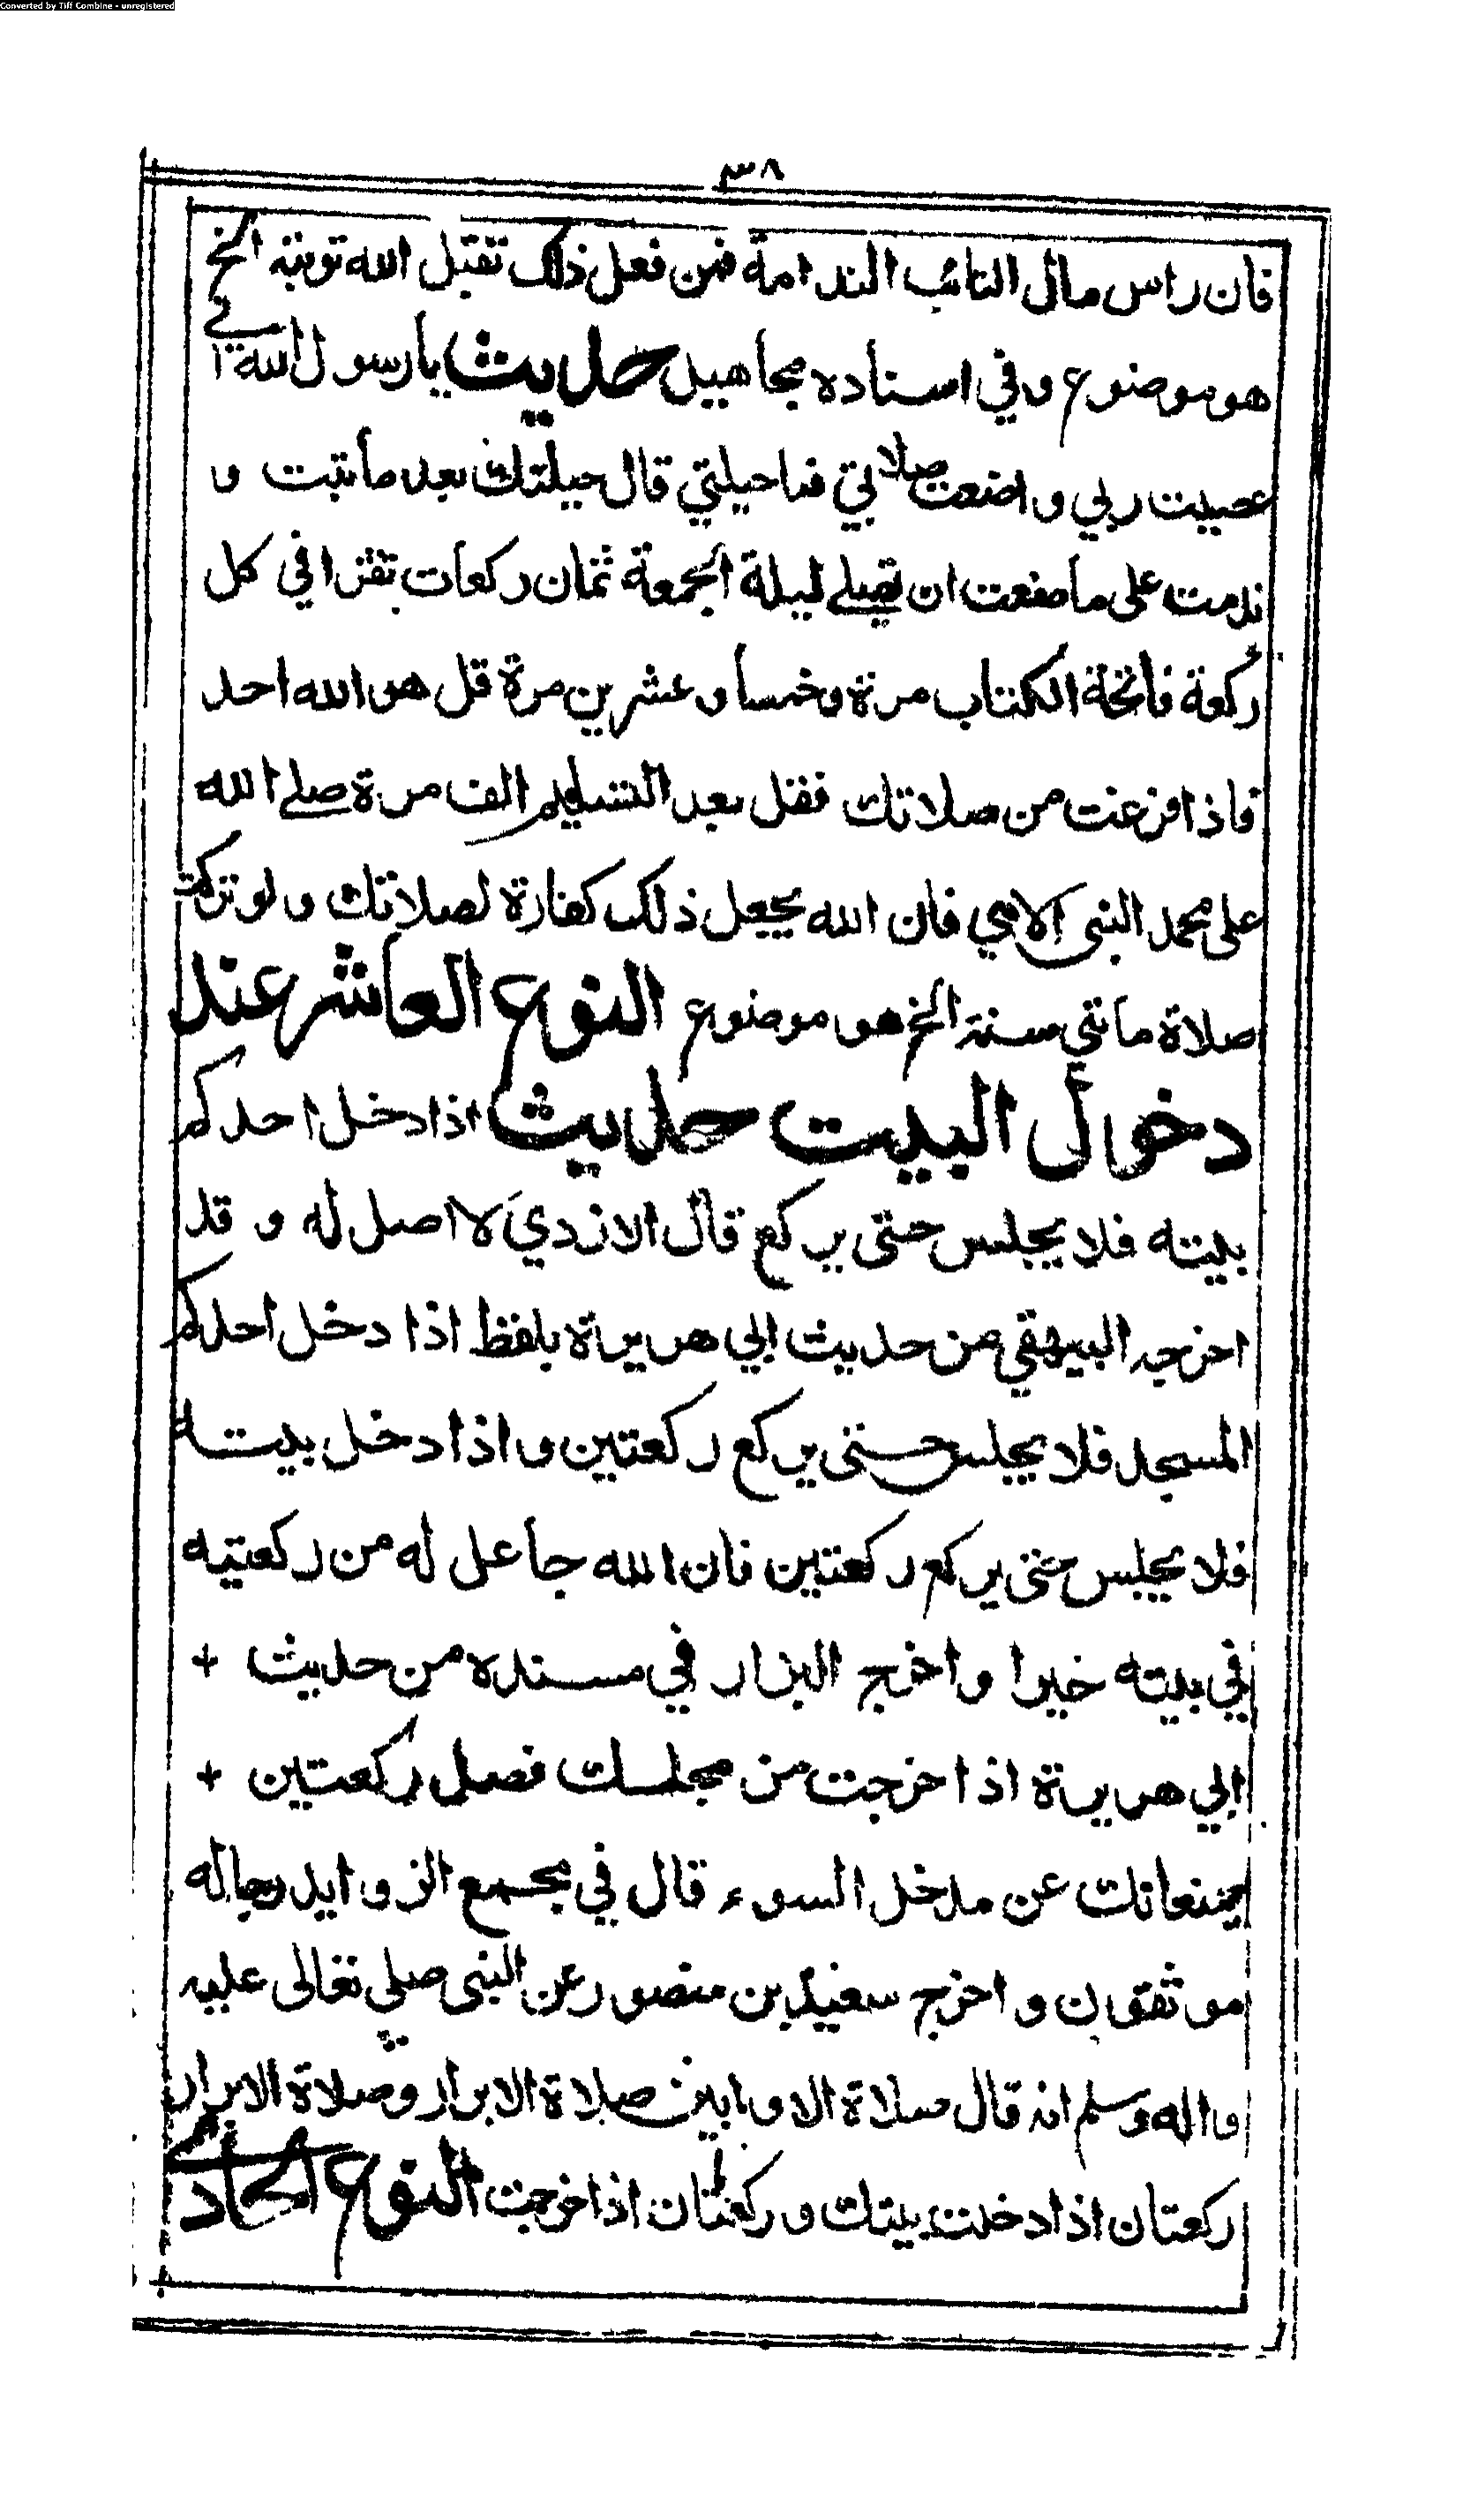 Converted by Tiff Combine - unregistered
٣٨
فان راس مال التائب الندامة فمن فعل ذلك تقبل الله توبته الخ
هو موضوع وفي اسناده مجاهيل حديث يا رسول الله اني
عصيت ربي واضعت صلاتي فما حيلتي قال حيلتك بعد ما تبت و
ندمت على ما صنعت ان تصلي ليلة الجمعة ثمان ركعات تقرا في كل
ركعة فاتحة الكتاب مرة وخمسا وعشرين مرة قل هو الله احد
فاذا فرغت من صلاتك فقل بعد التسليم الف مرة صلى الله
على محمد النبى الامي فان الله يجعل ذلك كفارة لصلاتك ولو تركت
صلاة مائتي سنة الخ هو موضوع النوع العاشر عند
دخول البيت حديث اذا دخل احدكم
بيته فلا يجلس حتى يركع قال الازدي لا اصل له و قد
اخرجه البيهقي من حديث ابي هريرة بلفظ اذا دخل احدكم
المسجد فلا يجلس حتى يركع ركعتين واذا دخل بيته
فلا يجلس حتى يركع ركعتين فان الله جاعل له من ركعتيه
في بيته خيرا واخرج البزار في مسنده من حديث +
ابي هريرة اذا خرجت من مجلسك فصل ركعتين +
يمنعانك عن مدخل السوء قال في مجمع الزوايد رجاله
موثقون و اخرج سعيد بن منصور عن النبى صلي تعالى عليه
واله وسلم انه قال صلاة الاوابين صلاة الابرار وصلاة الابرار
ركعتان اذا دخلت بيتك وركعتان اذا خرجت النوع الحادي